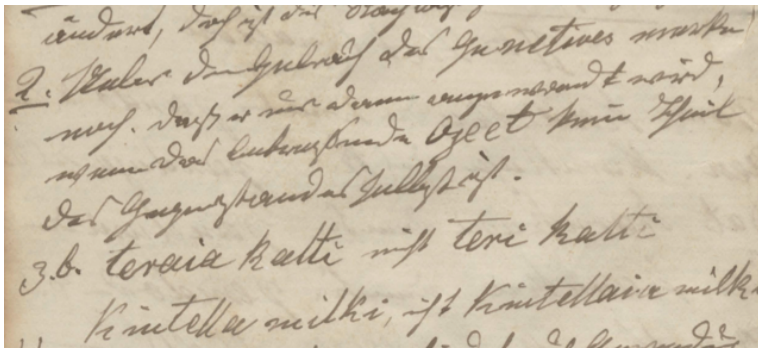 ändert, doch ist das
2. Ueber den Gebrauch des Genetives merke
noch, daß er nur dann angewandt wird,
wenn das Object kein Theil
des Gegenstandes selbst ist.
z.b. teraia katti nicht teri katti
Kintella milki, nicht Kintellaia milk